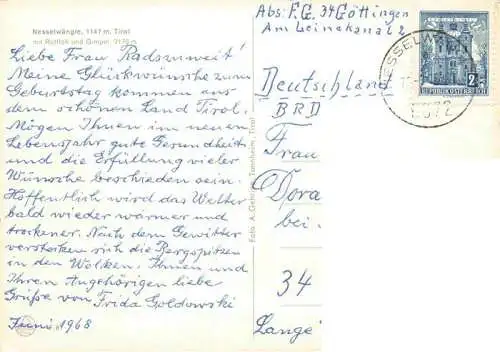 Nesselwängle, 1147 m, Tirol
mit Rotflüh und Gimpel, 2176 m
Liebe Frau Radszuweit!
Meine Glückwünsche zum
Geburtstag kommen aus
dem schönen Land Tirol.
Mögen Ihnen im neuen
Lebensjahr gute Gesundheit
und die Erfüllung vieler
Wünsche beschieden sein.
Hoffentlich wird das Wetter
bald wieder wärmer und
trockener. Nach dem Gewitter
verstecken sich die Bergspitzen
in den Wolken. Ihnen und
Ihren Angehörigen liebe
Grüße von Frida Goldowski
Juni 1968
Foto A. Gehring, Tannheim, Tirol
Abs: F. G. 34 Göttingen
Am Leinekanal 2
Deutschland
BRD
Frau
Dora
bei
34
Lange
REPUBLIK ÖSTERREICH
2
NESSELW
6672